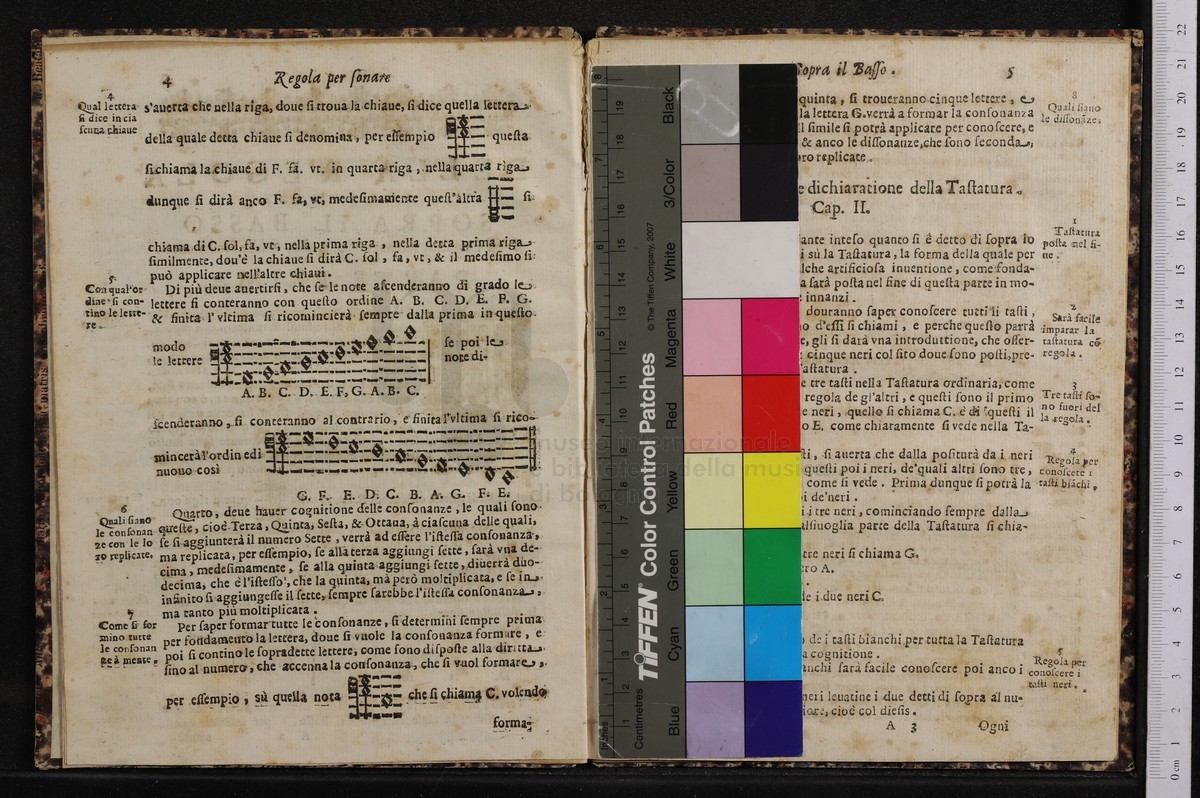 4
Regola per ſonare
4
Qual lettera
ſi dice in cia
ſcuna chiaue
s'auerta che nella riga, doue ſi troua la chiaue, ſi dice quella lettera
della quale detta chiaue ſi denomina, per eſſempio queſta
ſi chiama la chiaue di F. fa. vt. in quarta riga, nella quarta riga
dunque ſi dirà anco F. fa, vt, medeſimamente queſt'altra ſi
chiama di C. ſol, fa, vt, nella prima riga, nella detta prima riga
ſimilmente, dou'è la chiaue ſi dirà C. ſol, fa, vt, & il medeſimo ſi
può applicare nell'altre chiaui.
5
Con qual'or
dine ſi con-
tino le lette-
re.
Di più deue auertirſi, che ſe le note aſcenderanno di grado le
lettere ſi conteranno con queſto ordine A. B. C. D. E. F. G.
& finita l'vltima ſi ricomincierà ſempre dalla prima in queſto
modo
le lettere
ſe poi le
note di-
A. B. C. D. E. F, G. A. B. C.
ſcenderanno, ſi conteranno al contrario, e finita l'vltima ſi rico-
mincerà l'ordine di
nuouo così
G. F. E. D. C. B. A. G. F. E.
6
Quali ſiano
le conſonan
ze con le lo
ro replicate.
Quarto, deue hauer cognitione delle conſonanze, le quali ſono
queſte, cioè Terza, Quinta, Seſta, & Ottaua, à ciaſcuna delle quali,
ſe ſi aggiunterà il numero Sette, verrà ad eſſere l'iſteſſa conſonanza,
ma replicata, per eſſempio, ſe alla terza aggiungi ſette, ſarà vna de-
cima, medeſimamente, ſe alla quinta aggiungi ſette, diuerrà duo-
decima, che è l'iſteſſo, che la quinta, mà però moltiplicata, e ſe in
infinito ſi aggiungeſſe il ſette, ſempre ſarebbe l'iſteſſa conſonanza,
ma tanto più moltiplicata.
7
Come ſi for
mino tutte
le conſonan
ze à mente.
Per ſaper formar tutte le conſonanze, ſi determini ſempre prima
per fondamento la lettera, doue ſi vuole la conſonanza formare, e
poi ſi contino le ſopradette lettere, come ſono diſpoſte alla diritta
ſino al numero, che accenna la conſonanza, che ſi vuol formare,
per eſſempio, sù quella nota che ſi chiama C. volendo
forma-
Sopra il Baſſo.
5
quinta, ſi troueranno cinque lettere, e
la lettera G. verrà a formar la conſonanza
Il ſimile ſi potrà applicare per conoſcere, e
& anco le diſſonanze, che ſono ſeconda,
ro replicate.
8
Quali ſiano
le diſſonáze.
e dichiaratione della Taſtatura.
Cap. II.
1
Taſtatura
poſta nel fi-
ne.
ante inteſo quanto ſi è detto di ſopra lo
i sù la Taſtatura, la forma della quale per
lche artificioſa inuentione, come fonda-
a ſarà poſta nel fine di queſta parte in mo-
innanzi.
2
Sarà facile
imparar la
taſtatura cō
regola.
douranno ſaper conoſcere tutti li taſti,
o d'eſſi ſi chiami, e perche queſto parrà
e, gli ſi darà vna introduttione, che oſſer-
cinque neri col ſito doue ſono poſti, pre-
aſtatura.
3
Tre taſti ſo-
no fuori del
la regola.
e tre taſti nella Taſtatura ordinaria, come
regola de gl'altri, e queſti ſono il primo
e neri, quello ſi chiama C. e di queſti il
o E. come chiaramente ſi vede nella Ta-
4
Regola per
conoſcere i
taſti biāchi.
ſti, ſi auerta che dalla poſitura da i neri
queſti poi i neri, de'quali altri ſono tre,
come ſi vede. Prima dunque ſi potrà la
i de'neri.
i i tre neri, cominciando ſempre dalla
alſiuoglia parte della Taſtatura ſi chia-
tre neri ſi chiama G.
ro A.
le i due neri C.
de i taſti bianchi per tutta la Taſtatura
a cognitione.
anchi ſarà facile conoſcere poi anco i
5
Regola per
conoſcere i
taſti neri.
neri leuatine i due detti di ſopra al nu-
iore, cioè col dieſis.
A 3
Ogni
TIFFEN Color Control Patches
© The Tiffen Company, 2007
Centimetres
Inches
Blue
Cyan
Green
Yellow
Red
Magenta
White
3/Color
Black
museo internazionale
biblioteca della musica
di bologna